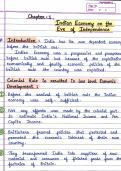 Chapter - 1
Indian Economy on the
Eve of Independence
Introduction : India has its own dependent economy
before the British era.
Indian Economy was a prosperous and
before British rule but because of the exploitative
and faulty economic policies of the
British the country was exploited.
Colonial Rule is resulted in Low level Economic
Development :
Before the control of British rule the Indian
economy was self-sufficient.
No any efforts was made by the colonial govt.
to estimate India's National Income and Per
Capita Income.
Britishers framed policies that protected and
promoted the economic interest of their own
country.
They transformed India into supplier of raw
material and consumer of finished goods from the
of Britain.